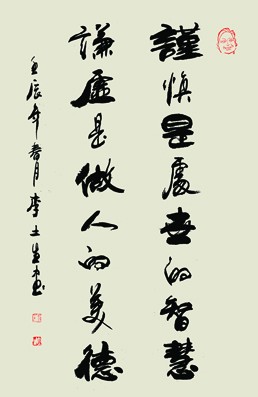 謹慎是處世的智慧
謙虛是做人的美德
壬辰年春月李士生書